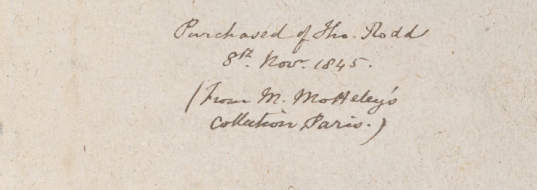 Purchased of Tho. Rodd
8th. Nov. 1845.
(From M. Motteley's
Collection Paris.)